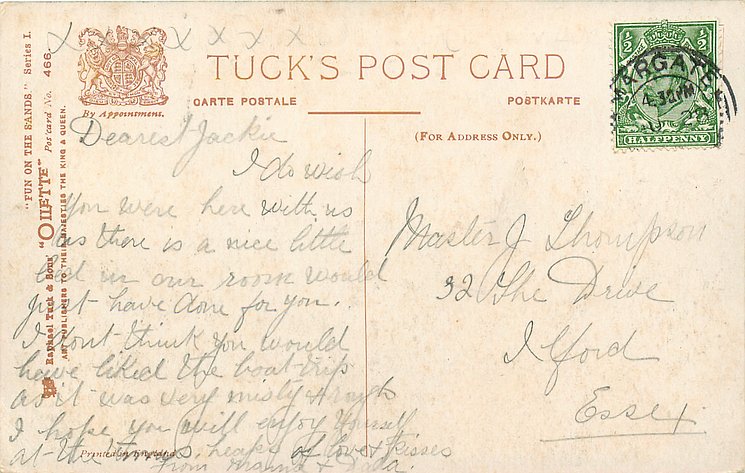 x x x x x x
TUCK'S POST CARD
CARTE POSTALE
POSTKARTE
By Appointment.
(FOR ADDRESS ONLY.)
"FUN ON THE SANDS." Series I.
"OILETTE" Postcard No. 466.
Raphael Tuck & Sons'
ART PUBLISHERS TO THEIR MAJESTIES THE KING & QUEEN.
Dearest Jackie
I do wish
you were here with us
as there is a nice little
bed in our room would
just have done for you.
I dont think you would
have liked the boat trip
as it was very misty & rough
I hope you will enjoy yourself
at the heaps of love & kisses
from mama & Dada.
Printed in England
Master J Thompson
32 The Drive
Ilford
Essex
1/2 1/2
MARGATE
4.30PM
HALFPENNY